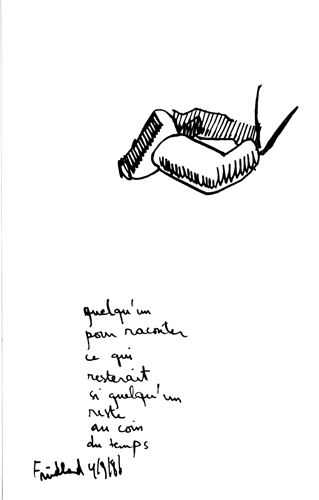 quelqu'un
pour raconter
ce qui
resterait
si quelqu'un
reste
au coin
du temps
4/9/86